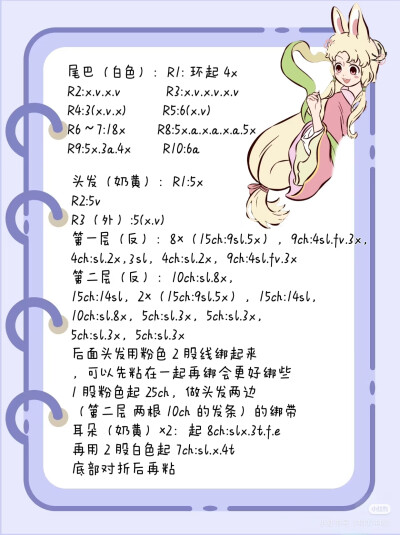 尾巴（白色）：R1: 环起 4x
R2:x.v.x.v R3:x.v.x.v.x.v
R4:3(x.v.x) R5:6(x.v)
R6～7:18x R8:5x.a.x.a.x.a.5x
R9:5x.3a.4x R10:6a
头发（奶黄）：R1:5x
R2:5v
R3（外）:5(x.v)
第一层（反）：8×（15ch:9sl.5x），9ch:4sl.fv.3x，
4ch:sl.2x，3sl，4ch:sl.2x，9ch:4sl.fv.3x
第二层（反）：10ch:sl.8x，
15ch:14sl，2×（15ch:9sl.5x），15ch:14sl，
10ch:sl.8x，5ch:sl.3x，5ch:sl.3x，
5ch:sl.3x，5ch:sl.3x
后面头发用粉色 2 股线绑起来
，可以先粘在一起再绑会更好绑些
1 股粉色起 25ch，做头发两边
（第二层 两根 10ch 的发条）的绑带
耳朵（奶黄）×2：起 8ch:slx.3t.f.e
再用 2 股白色起 7ch:sl.x.4t
底部对折后再粘